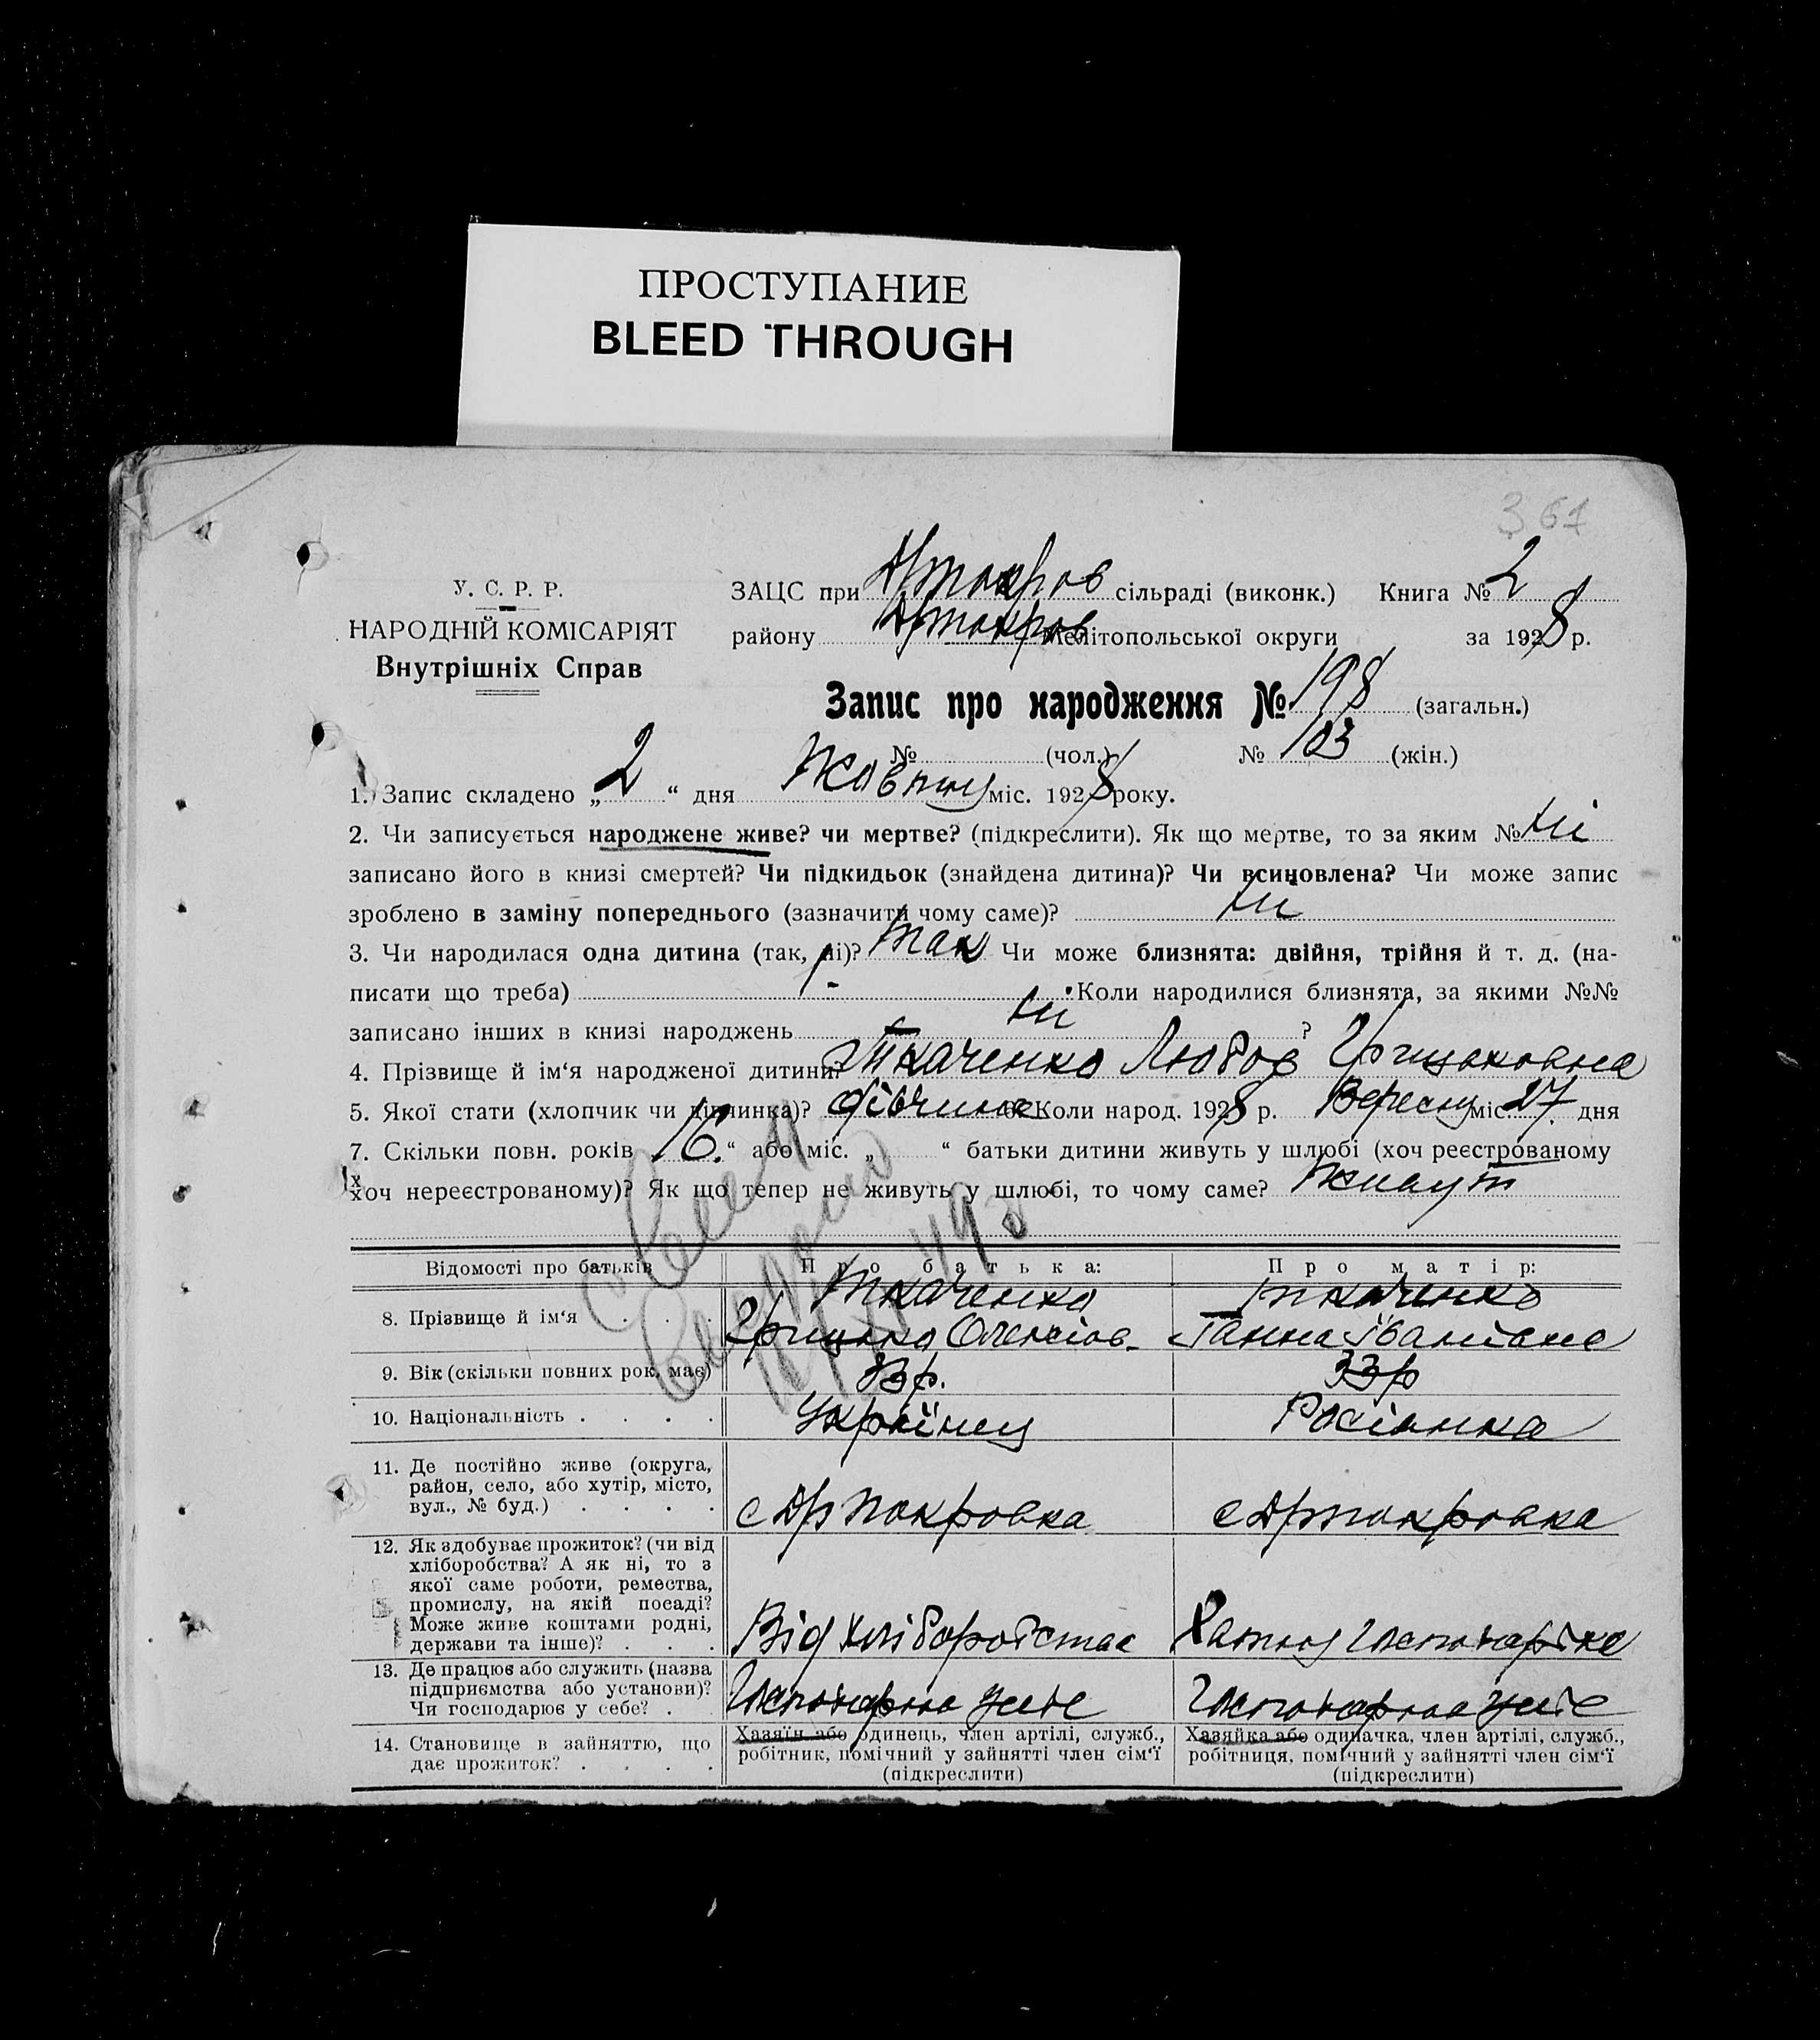 ПРОСТУПАНИЕ
BLEED THROUGH
367
У. С. Р. Р.
НАРОДНІЙ КОМІСАРІЯТ
Внутрішніх Справ
ЗАЦС при Дрпокров сільраді (виконк.) Книга № 2
району Дрпокров Мелітопольської округи за 1928 р.
Запис про народження № 198 (загальн.)
№ (чол.) № 103 (жін.)
1. Запис складено „2“ дня Жовтня міс. 1928 року.
2. Чи записується народжене живе? чи мертве? (підкреслити). Як що мертве, то за яким № ні
записано його в книзі смертей? Чи підкидьок (знайдена дитина)? Чи всиновлена? Чи може запис
зроблено в заміну попереднього (зазначити чому саме)? ні
3. Чи народилася одна дитина (так, ні)? так Чи може близнята: двійня, трійня й т. д. (на-
писати що треба) - Коли народилися близнята, за якими №№
записано інших в книзі народжень ні ?
4. Прізвище й ім‘я народженої дитини? Ткаченко Любов Грицьковна
5. Якої стати (хлопчик чи дівчинка)? дівчина 6. Коли народ. 1928 р. Вересня міс. 27 дня
7. Скільки повн. років 16 “ або міс. „ “ батьки дитини живуть у шлюбі (хоч реєстрованому
хоч нереєстрованому)? Як що тепер не живуть у шлюбі, то чому саме? живут
Відомості про батьків Про батька: Про матір:
8. Прізвище й ім‘я . . . Ткаченко Грицько Олексіов. Ткаченко Ганна Іванівна
9. Вік (скільки повних рок. має) 33р. 33р
10. Національність . . . . Українец Росіянка
11. Де постійно живе (округа,
район, село, або хутір, місто,
вул., № буд.) . . . . с Дрпокровка с Дрпокровка
12. Як здобуває прожиток? (чи від
хліборобства? А як ні, то з
якої саме роботи, ремества,
промислу, на якій посаді?
Може живе коштами родні,
держави та інше)? . . . Від хліборобства Хатня господарка
13. Де працює або служить (назва
підприємства або установи)?
Чи господарює у себе? .
14. Становище в зайняттю, що
дає прожиток? . . . .
Хазяїн або одинець, член артілі, служб.,
робітник, помічний у зайнятті член сім‘ї
(підкреслити)
Хазяйка або одиначка, член артілі, служб.,
робітниця, помічний у зайнятті член сім‘ї
(підкреслити)